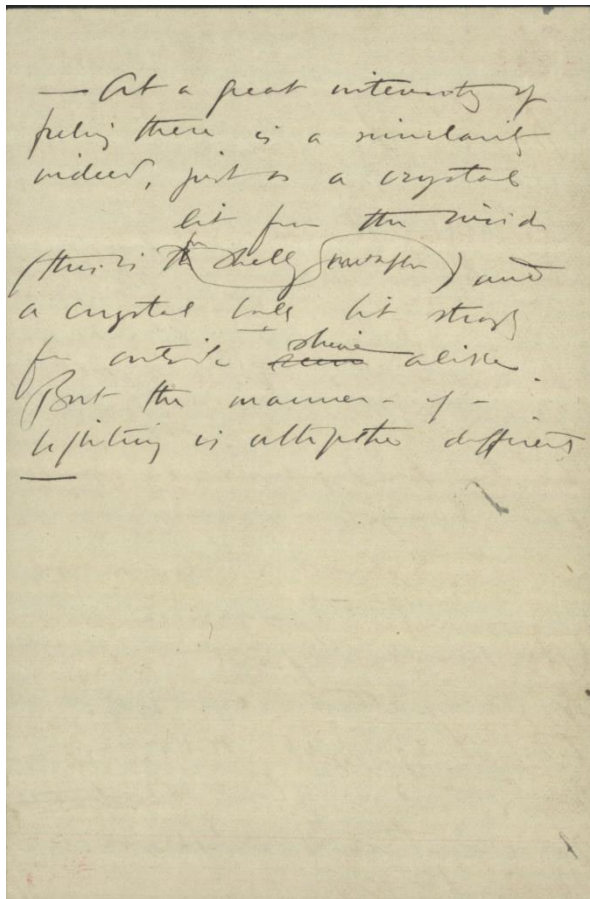 — At a great intensity of
feeling there is a similarity
indeed, just as a crystal
lit from the inside
(this is the for Shelly ) and
a crystal ball lit strongly
from outside seem shine alike
But the manner-of-
lighting is altogether different